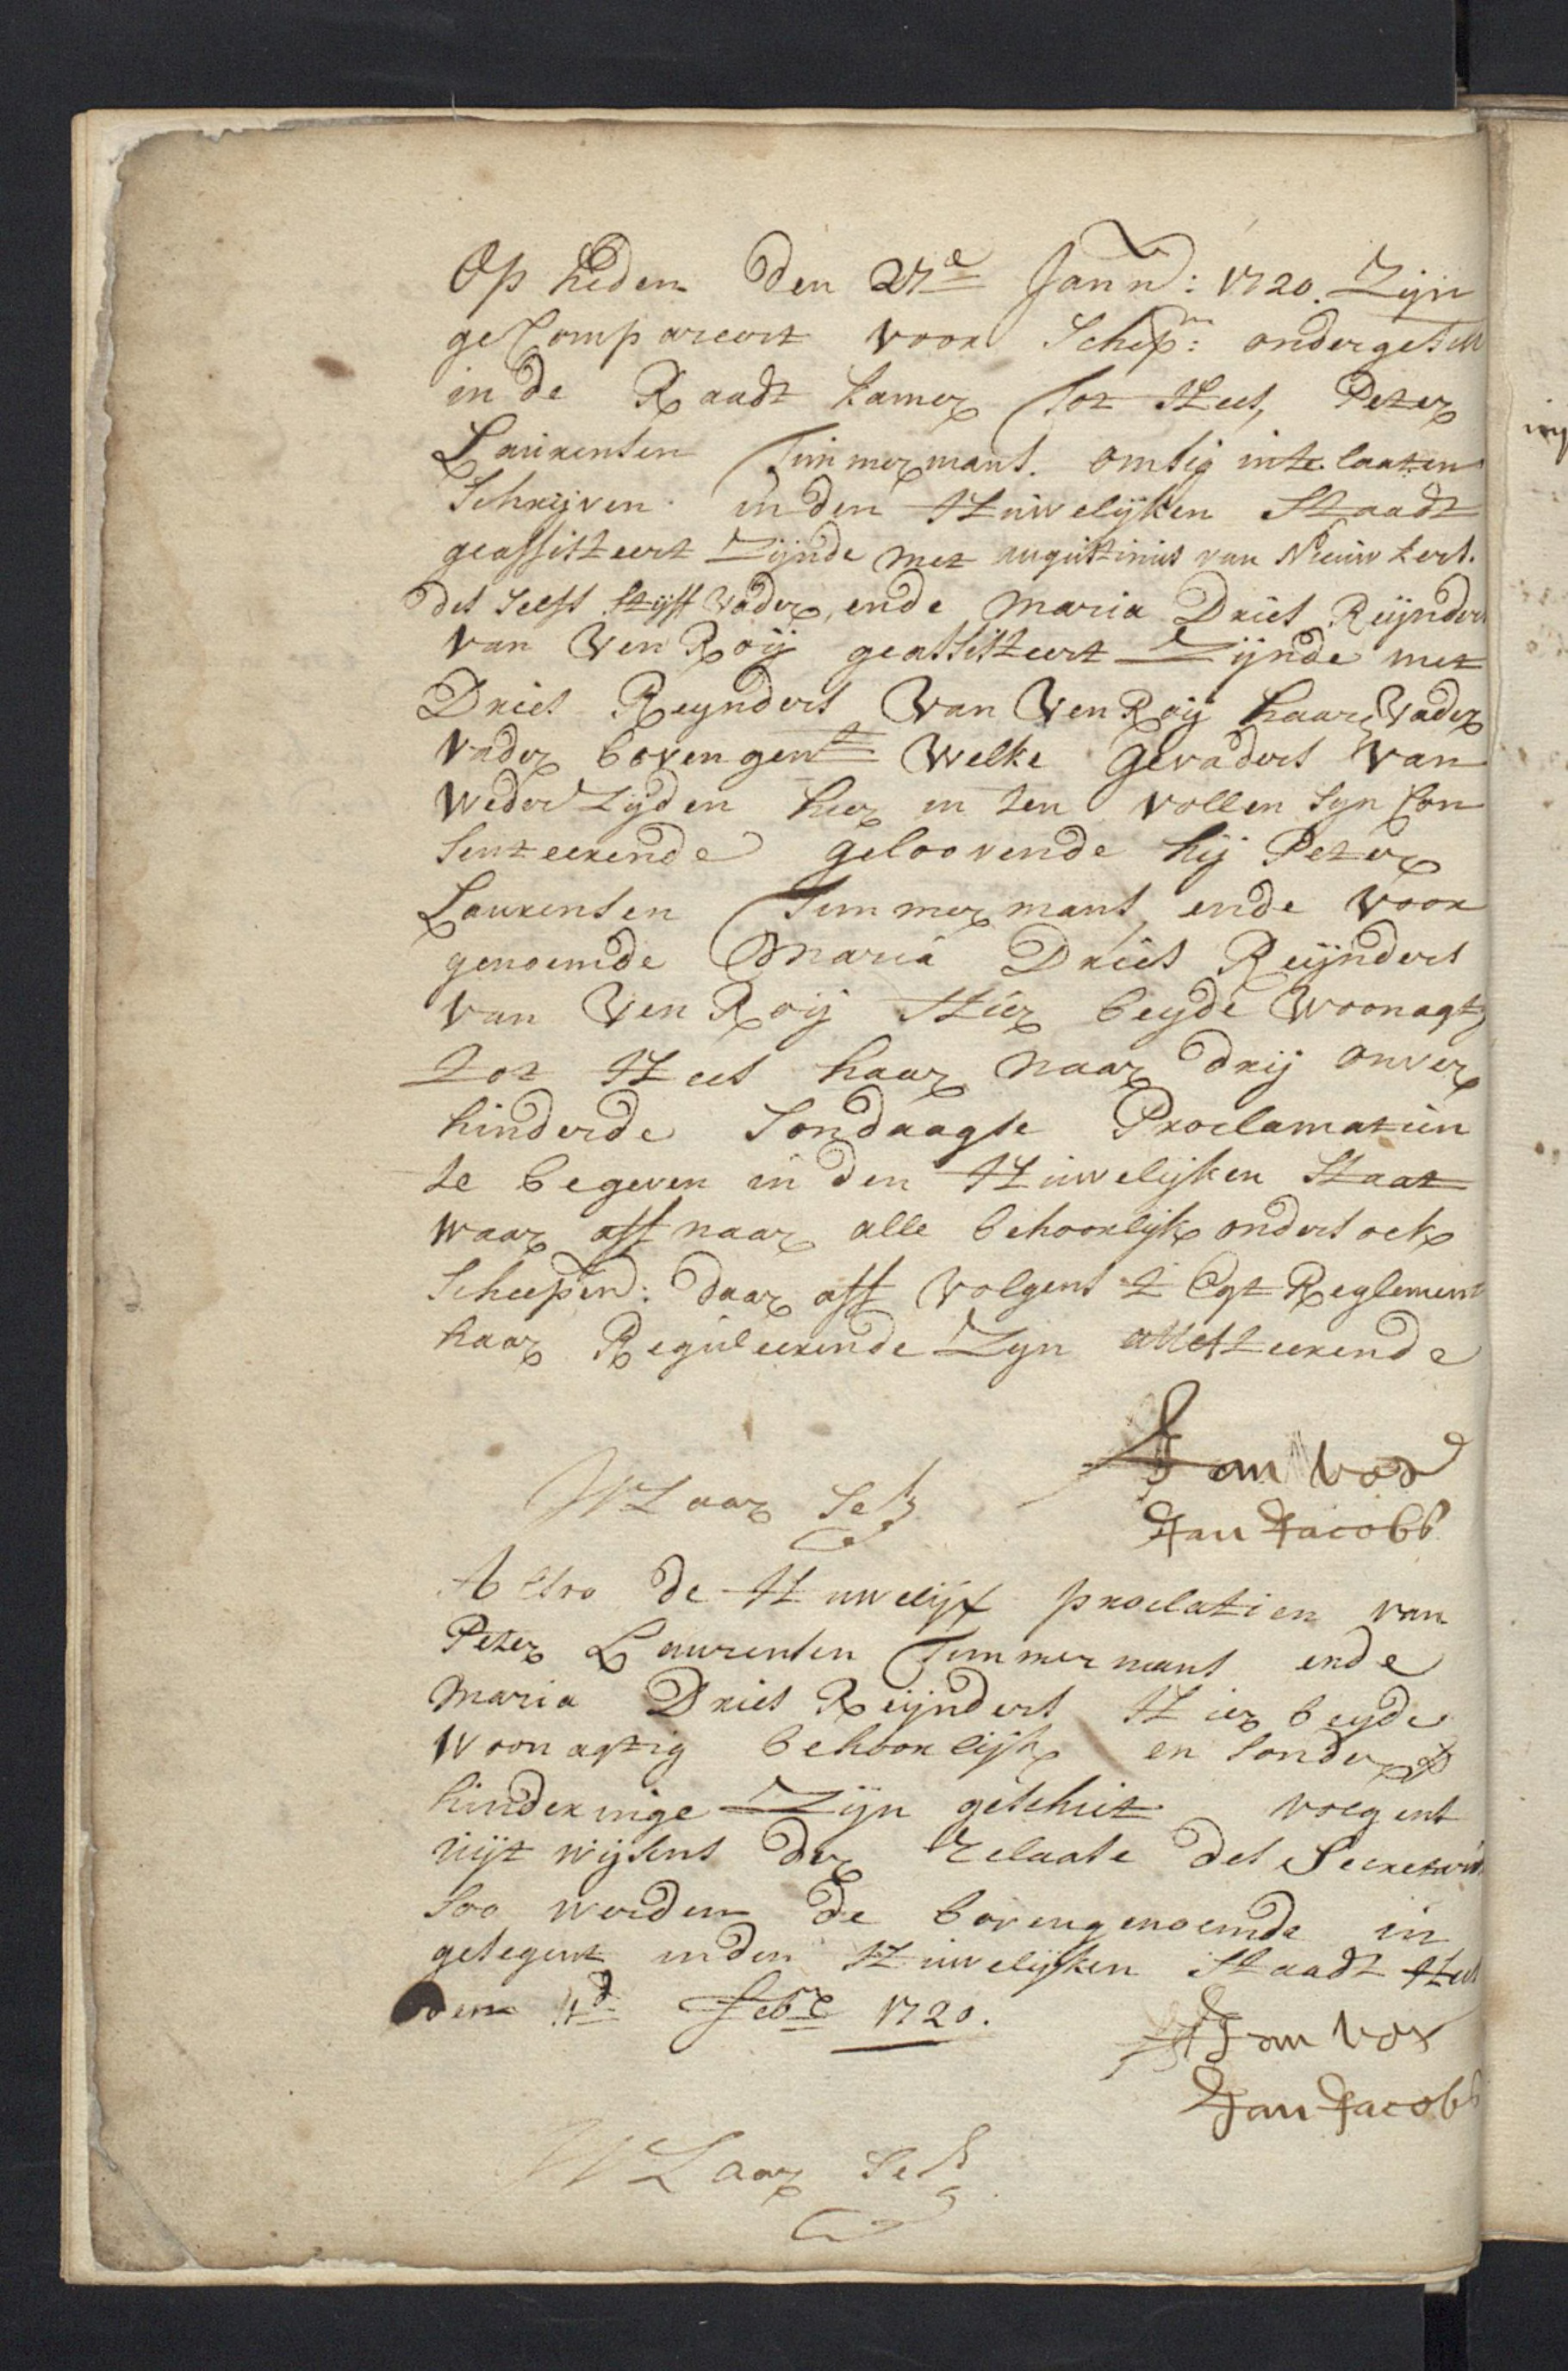 Op heden den 27e Jann: 1720. Zijn
geCompareert voor Schepn: ondergesch
in de Raadt kamer tot Hees, Peter
Laurensen Timmermans. om sig in te laaten
Schrijven in den Huwelijken Staadt
geassisteert Zijnde met augustinus van Nieuwkerk.
des selfs styff Vader, ende Maria Dries Reijnders
van VenRoij geassisteert Zijnde met
Dries Reynders Van VenRoij haar Vader
vader bovengent Welke Gevaders van
wederzijden hier in ten vollen syn Con
senteerende geloovende hij Peter
Laurensen Timmermans, ende Voor
genoemde Maria Dries Reijnders
van VenRoij Hier beyde Woonagtg
Tot Hees haar naar drij onver
hinderde Sondaagse Proclamatien
te begeven in den Huwelijken Staat
waar aff naar alle behoorlijk ondersoek
Scheepen: daar aff Volgens 't Egt Reglement
haar Reguleerende Zyn attesteerende
Jan Vos
WLaar Sets
Jan Jacobs
Alsoo de Huwelijx proclatien van
Peter Laurensen Timmermans ende
Maria Dries Reijnders Hier beyde
Woonagtig behoorlijk en sonder
hinderinge Zijn geschiet volgens
uijt wijsens der relaase des Secretaris
soo worden de bovengenoemde in
getegent in den Huwelijken Staadt Hees
den 11d Febr 1720.
Jan Vos
Jan Jacobs
WLaar Sets